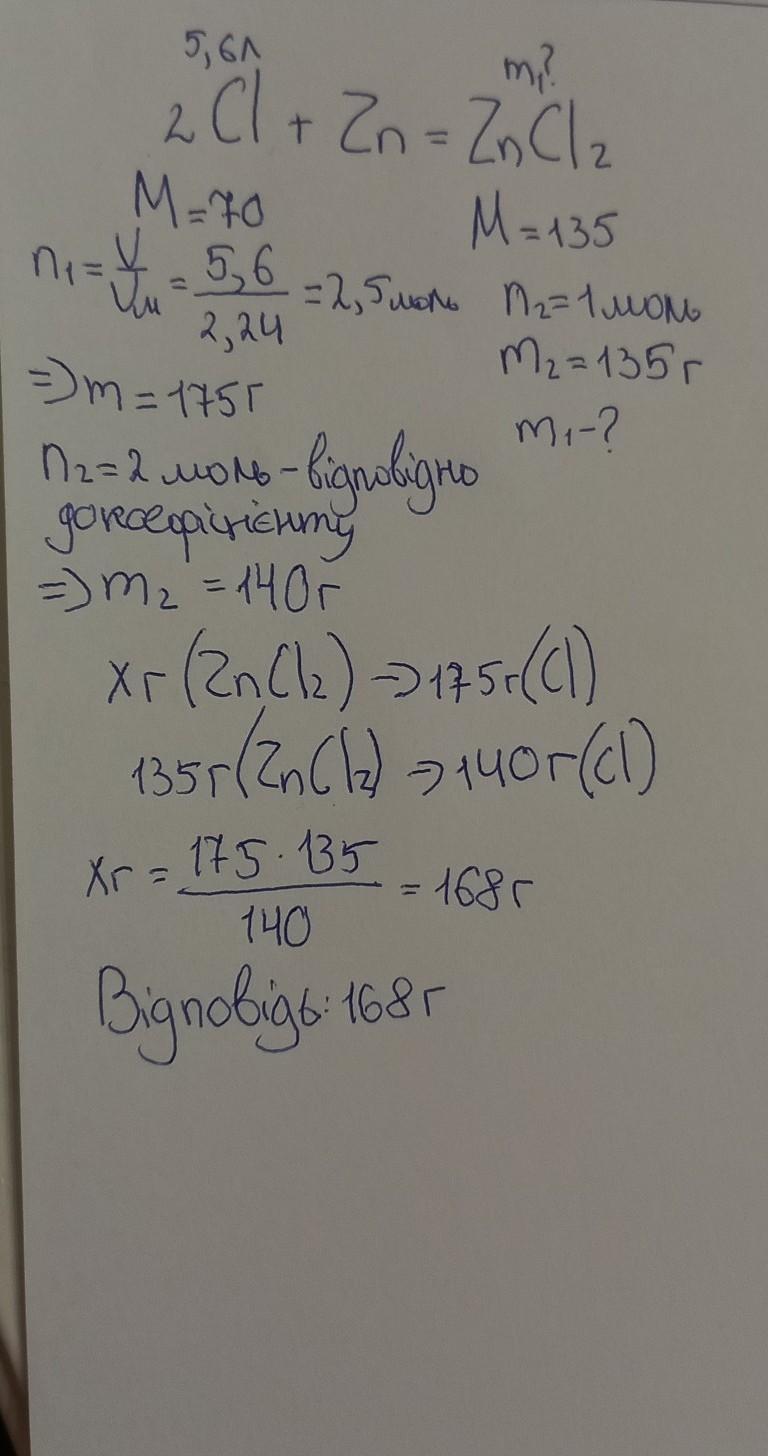 5,6л
m₁?
2Cl + Zn = ZnCl₂
M = 70
M = 135
n₁ = V/Vм = 5,6/2,24 = 2,5 моль
n₂ = 1 моль
m₂ = 135 г
⇒ m = 175 г
m₁ - ?
n₂ = 2 моль - відповідно
до коефіцієнту
⇒ m₂ = 140 г
xг (ZnCl₂) → 175г (Cl)
135г (ZnCl₂) → 140г (Cl)
xг = 175 · 135 / 140 = 168 г
Відповідь: 168 г